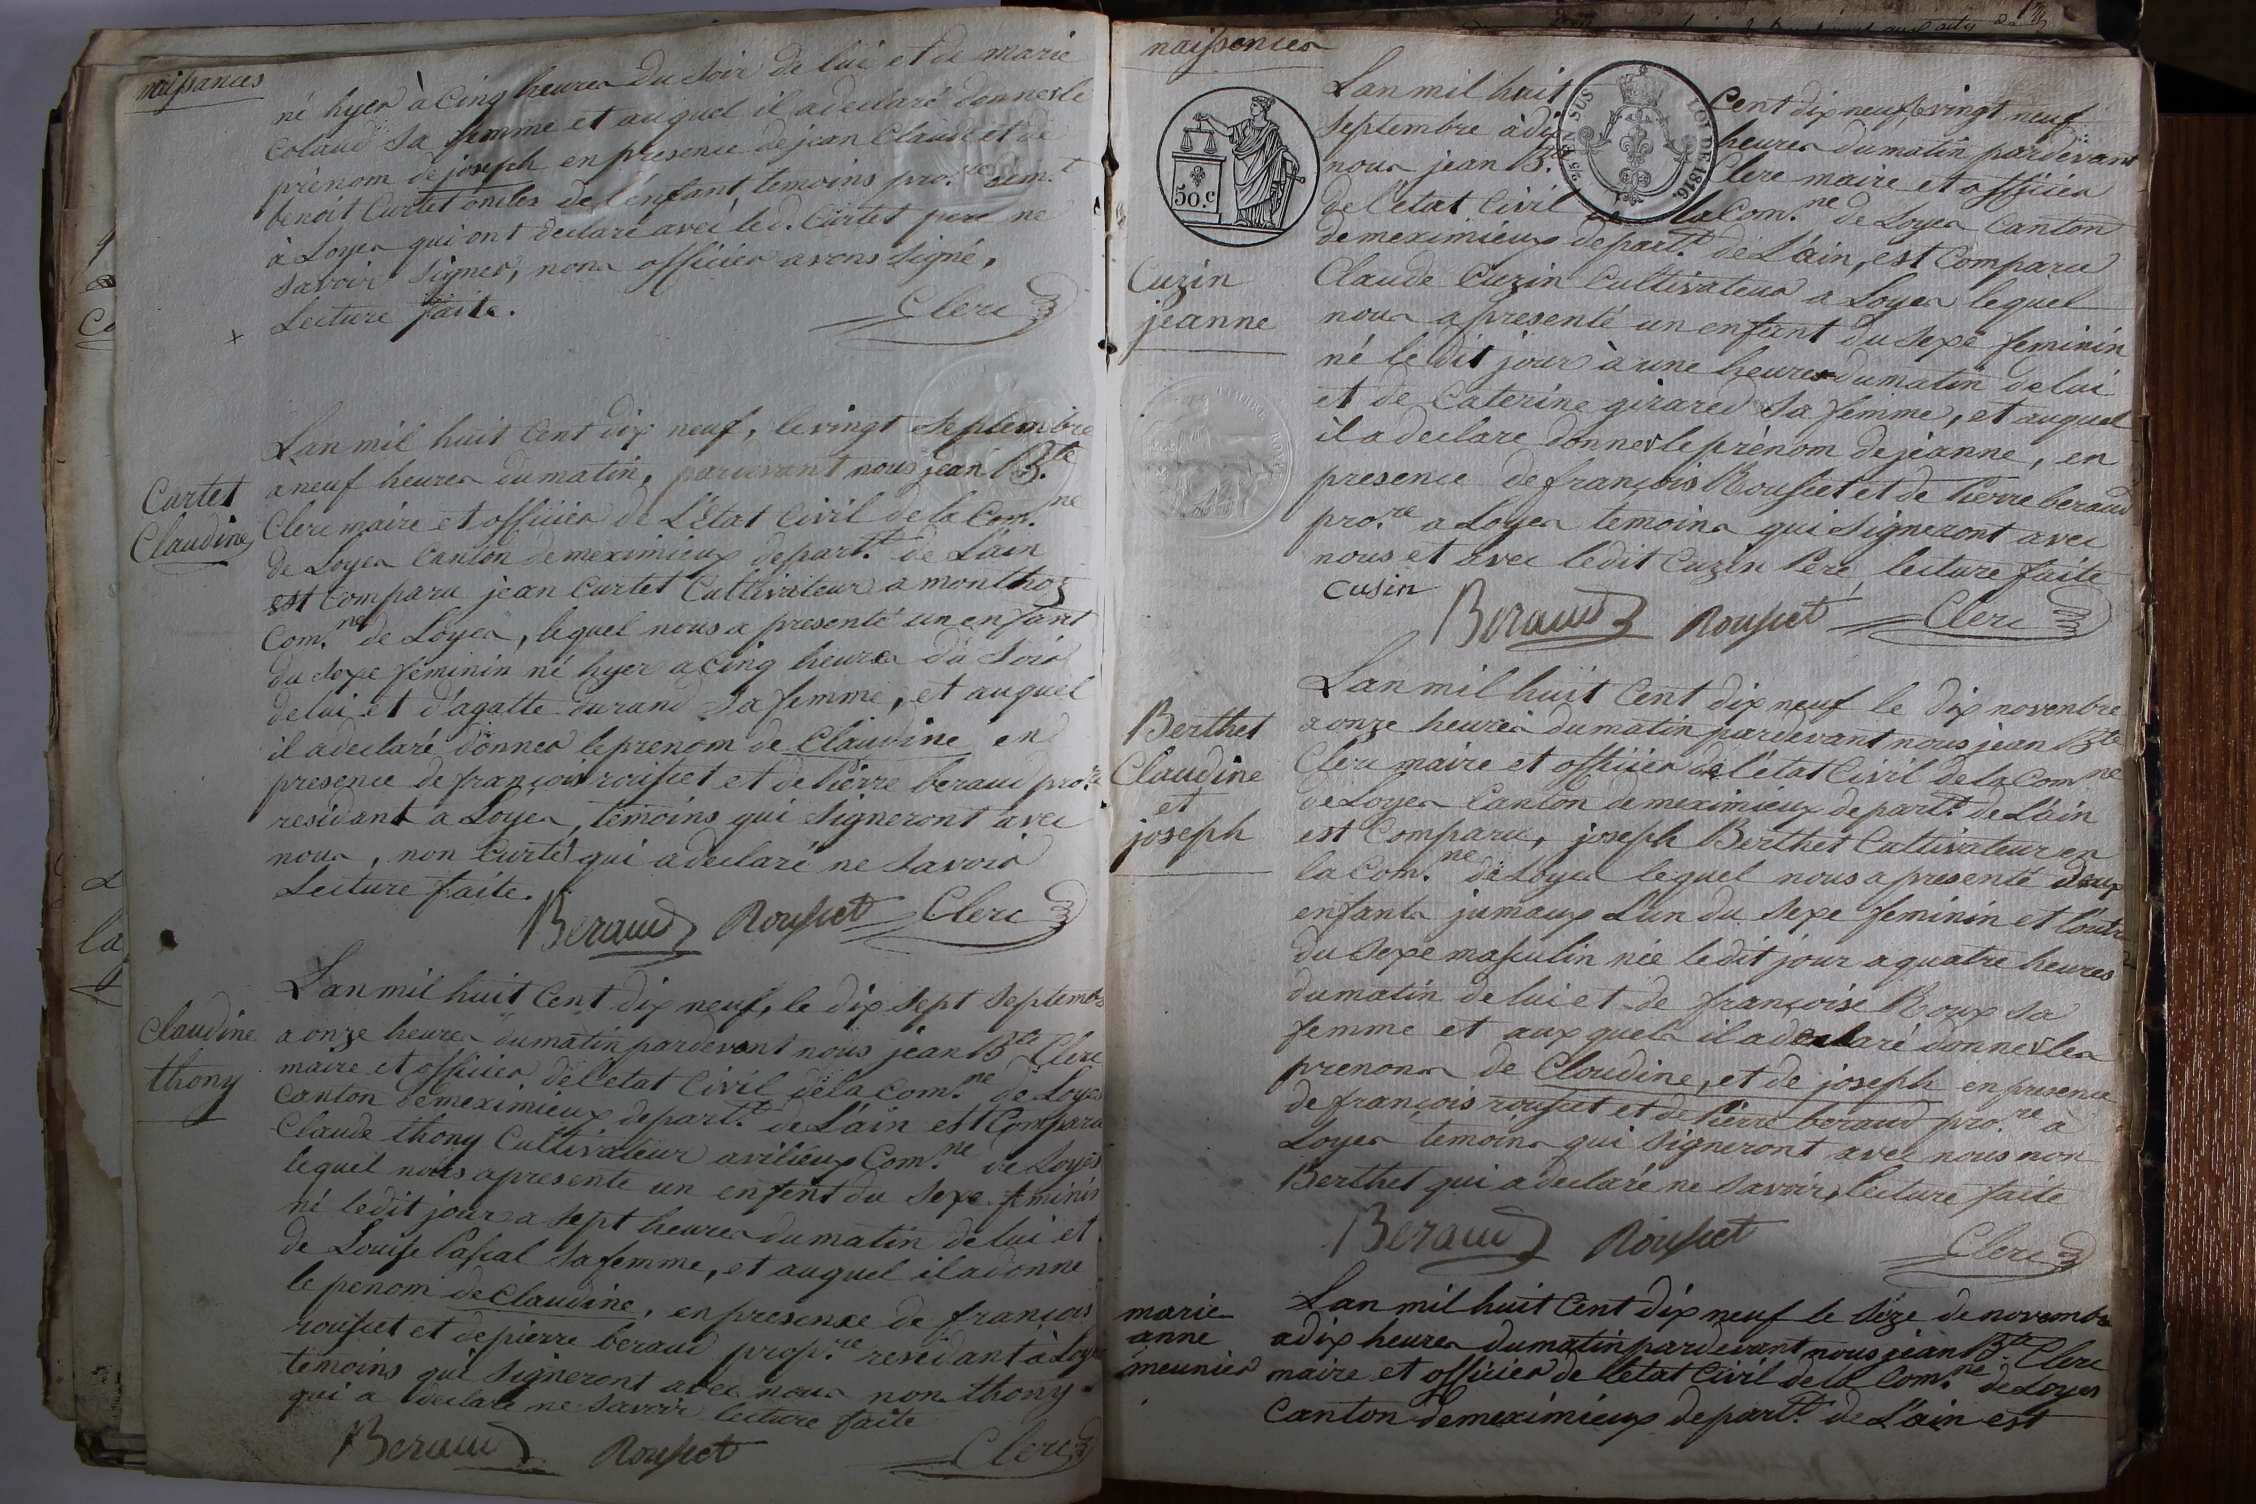 naissances
né hyer à cinq heures du soir de lui et de marie
Colaud sa femme et auquel il a declaré donner le
prénom de joseph en presence de jean Claude et de
benoit Curtet oncles de l'enfant, temoins pro.res dem.t
à Loyes qui ont declaré avec led. Curtet pere ne
savoir signer, nous officier avons signé,
Lecture faite.
Clerc
Curtet
Claudine
Lan mil huit Cent dix neuf, le vingt Septembre
a neuf heures du matin, pardevant nous jean B.te
Clerc maire et officier de L'état Civil de la Com.ne
de Loyes Canton de meximieux depart.t de L'ain
est Comparu jean Curtet Cultivateur a monthoz
Com.ne de Loyes, lequel nous a presenté un enfant
du sexe féminin né hyer a cinq heures du soir
de lui et d'agatte durand sa femme, et auquel
il a declaré donner le prenom de Claudine en
presence de françois rousset et de Pierre beraud pro.re
residant a Loyes, temoins qui signeront avec
nous, non Curtet qui a declaré ne savoir
Lecture faite.
Beraud Rousset Clerc
Claudine
thony
Lan mil huit Cent dix neuf, le dix sept septembre
a onze heures du matin pardevant nous jean B.te Clerc
maire et officier de l'etat Civil de la com.ne de Loyes
Canton de meximieux depart.t de L'ain est Comparu
Claude thony Cultivateur a vilieux Com.ne de Loyes
lequel nous a presente un enfent du sexe feminin
né ledit jour a sept heures du matin de lui et
de Louise Pascal sa femme, et auquel il a donné
le penom de Claudine, en presence de francois
rousset et de pierre beraud prop.re residant à Loyes
temoins qui signeront avec nous non thony
qui a declaré ne savoir lecture faite
Beraud Rousset Clerc
naissances
50.c
2/5 EN SUS
LOI DE 1816.
Cuzin
jeanne
Lan mil huit Cent dix neuf, le vingt neuf
septembre à dix heures du matin pardevant
nous jean B.te Clerc maire et officier
de l'état Civil de la Com.ne de Loyes Canton
de meximieux depart.t de L'ain, est Comparu
Claude Cuzin Cultivateur a Loyes lequel
nous a presenté un enfant du sexe feminin
né le dit jour à une heures du matin de lui
et de Caterine girared sa femme, et auquel
il a declare donner le prénom de jeanne, en
presence de françois Rousset et de Pierre beraud
pro.re a Loyes temoins qui signeront avec
nous et avec ledit Cuzin Pere, lecture faite
cusin
Beraud Rousset Clerc
Berthet
Claudine
et
joseph
Lan mil huit Cent dix neuf le dix novenbre
a onze heures du matin pardevant nous jean B.te
Clerc maire et officier de l'état Civil de la Com.ne
de Loyes Canton de meximieux depart.t de L'ain
est Comparu, joseph Berthet Cultivateur en
la Com.ne de Loyes lequel nous a presenté deux
enfants jumaux L'un du sexe feminin et l'autre
du sexe masculin née ledit jour a quatre heures
du matin de lui et de françoise Roux sa
femme et aux quels il a declaré donner les
prenoms de Cloudine, et de joseph en presence
de françois rousset et de Pierre beraud pro.re à
Loyes temoins qui signeront avec nous non
Berthet qui a declaré ne savoir, lecture faite
Beraud Rousset Clerc
marie
anne
meunier
Lan mil huit Cent dix neuf le sèze de novembre
a dix heures du matin pardevant nous jean B.te Clerc
maire et officier de L'etat Civil de la Com.ne de Loyes
Canton de meximieux depart.t de L'ain est